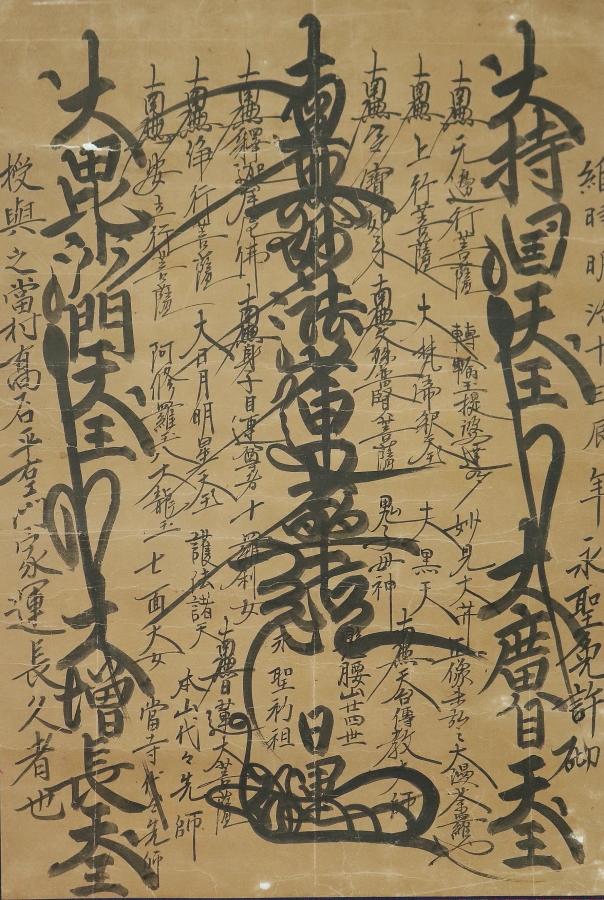 維時明治十三辰年永聖免許砌
大持国天王 大廣目天王
南無无邊行菩薩 轉輪王提婆達多 妙見大井
南無上行菩薩 大梵帝釈天王 大黒天
正像未弘之大漫荼羅也
南無多寶如来 南無文殊普賢菩薩 鬼子母神 南無天台傳教大師
南無妙法蓮華経
腰山廿四世
日健
永聖初祖
南無釋迦牟尼佛 南無身子目連尊者 十羅刹女 南無日蓮大菩薩
南無浄行菩薩 大日月明星天王 護法諸天 本山代々先師
南無安立行菩薩 阿修羅王 八大龍王 七面大女 當寺代々先師
大毘沙門天王 大増長天王
授與之當村髙石平左衛家運長久者也